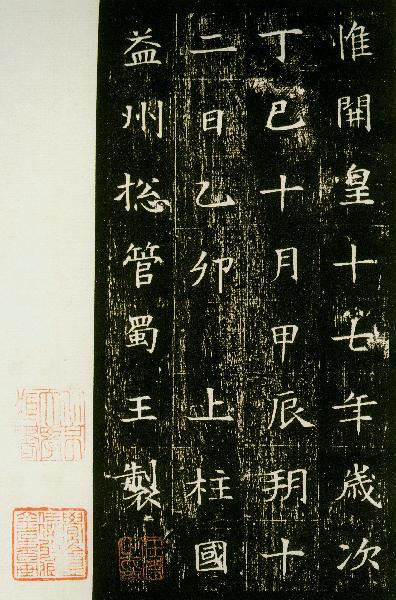 惟開皇十七年歲次
丁巳十月甲辰朔十
二日乙卯 上柱國
益州揔管蜀王製